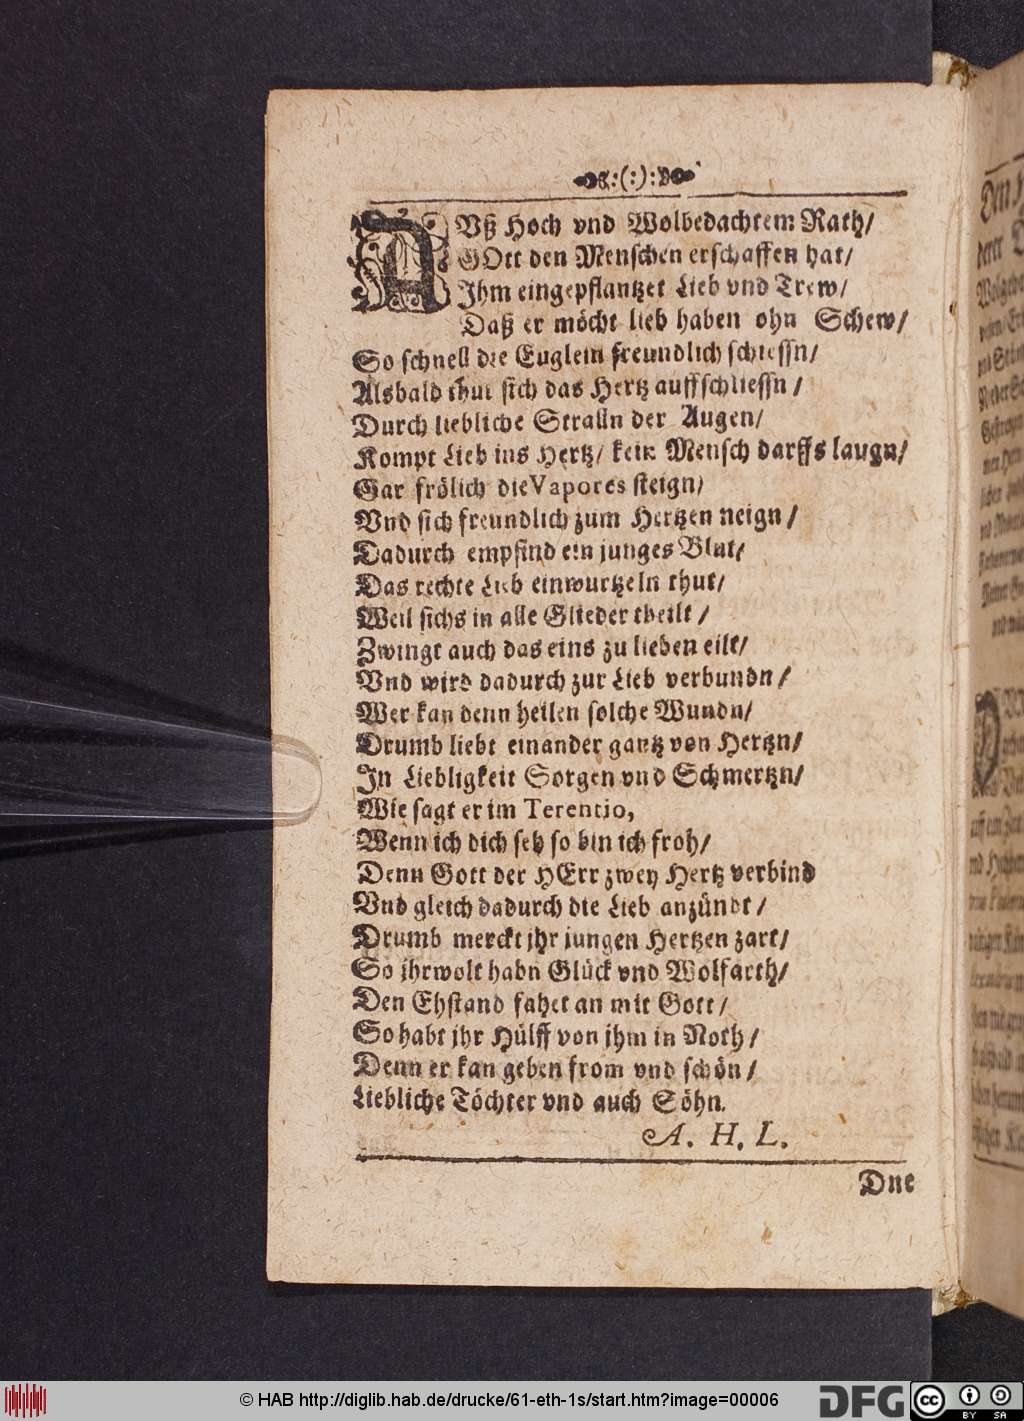 AVß Hoch vnd Wolbedachtem Rath/
GOtt den Menschen erschaffen hat/
Ihm eingepflantzet Lieb vnd Trew/
Daß er möcht lieb haben ohn Schew/
So schnell die Euglein freundlich schiessn/
Alsbald thut sich das Hertz auffschliessn/
Durch liebliche Straln der Augen/
Kompt Lieb ins Hertz/ kein Mensch darffs laugn/
Gar frölich die Vapores steign/
Vnd sich freundlich zum Hertzen neign/
Dadurch empfind ein junges Blut/
Das rechte Lieb einwurtzeln thut/
Weil sichs in alle Glieder theilt/
Zwingt auch das eins zu lieben eilt/
Vnd wird dadurch zur Lieb verbundn/
Wer kan denn heilen solche Wundn/
Drumb liebt einander gantz von Hertzn/
In Liebligkeit Sorgen vnd Schmertzn/
Wie sagt er im Terentio,
Wenn ich dich seh so bin ich froh/
Denn Gott der HErr zwey Hertz verbind
Vnd gleich dadurch die Lieb anzündt/
Drumb merckt jhr jungen Hertzen zart/
So jhr wolt habn Glück vnd Wolfarth/
Den Ehstand fahet an mit Gott/
So habt jhr Hülff von jhm in Noth/
Denn er kan geben from vnd schön/
Liebliche Töchter vnd auch Söhn.
A. H. L.
Dne
© HAB http://diglib.hab.de/drucke/61-eth-1s/start.htm?image=00006
DFG
cc BY SA